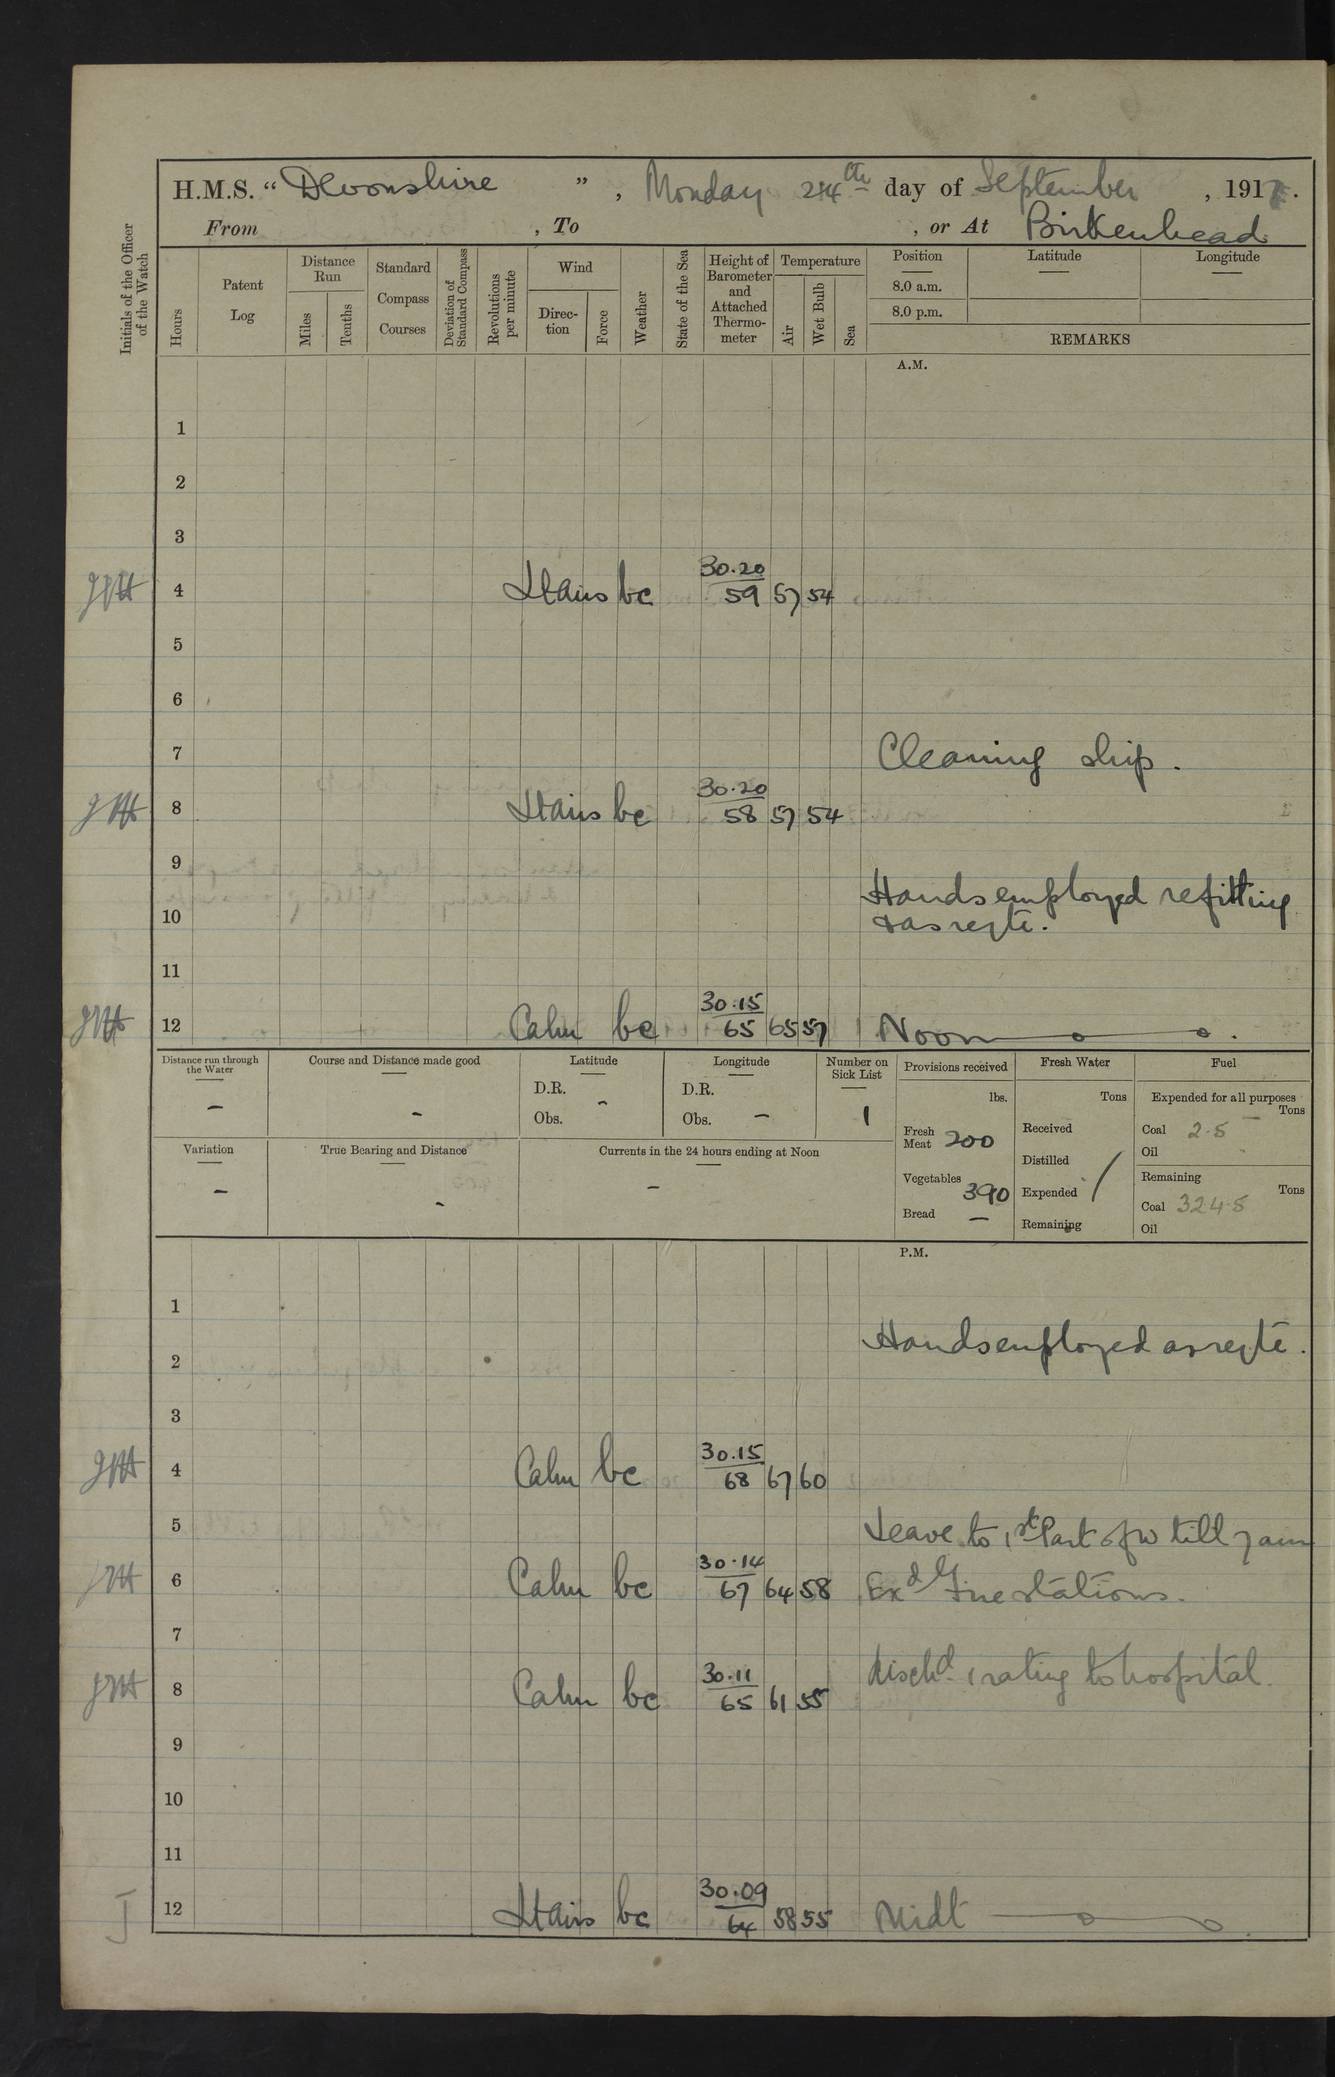 H.M.S. “Devonshire”, Monday 24th day of September, 1917.
From , To , or At Birkenhead
Initials of the Officer of the Watch
Hours
Patent Log
Distance Run
Miles
Tenths
Standard Compass Courses
Deviation of Standard Compass
Revolutions per minute
Wind
Direction
Force
Weather
State of the Sea
Height of Barometer and Attached Thermometer
Temperature
Air
Wet Bulb
Sea
Position
8.0 a.m.
8.0 p.m.
Latitude
Longitude
REMARKS
A.M.
1
2
3
4 Ltairs bc 30.20 59 57 54
5
6
7 Cleaning ship.
8 Ltairs bc 30.20 58 57 54
9
Hands employed refitting
10 & as reqte.
11
12 Calm bc 30.15 65 65 57 Noon
Distance run through the Water
-
Course and Distance made good
-
Latitude
D.R. -
Obs.
Longitude
D.R.
Obs. -
Number on Sick List
1
Provisions received
lbs.
Fresh Meat 200
Vegetables 390
Bread -
Fresh Water
Tons
Received
Distilled
Expended
Remaining
Fuel
Expended for all purposes
Tons
Coal 2.5
Oil
Remaining
Tons
Coal 324.5
Oil
Variation
-
True Bearing and Distance
-
Currents in the 24 hours ending at Noon
-
P.M.
1
Hands employed as reqte.
2
3
4 Calm bc 30.15 68 67 60
5 Leave to 1st Part of W till 7 am
6 Calm bc 30.14 67 64 58 Exd Fire stations.
7
Dischd. 1 rating to hospital.
8 Calm bc 30.11 65 61 55
9
10
11
12 Ltairs bc 30.09 64 58 55 Midt